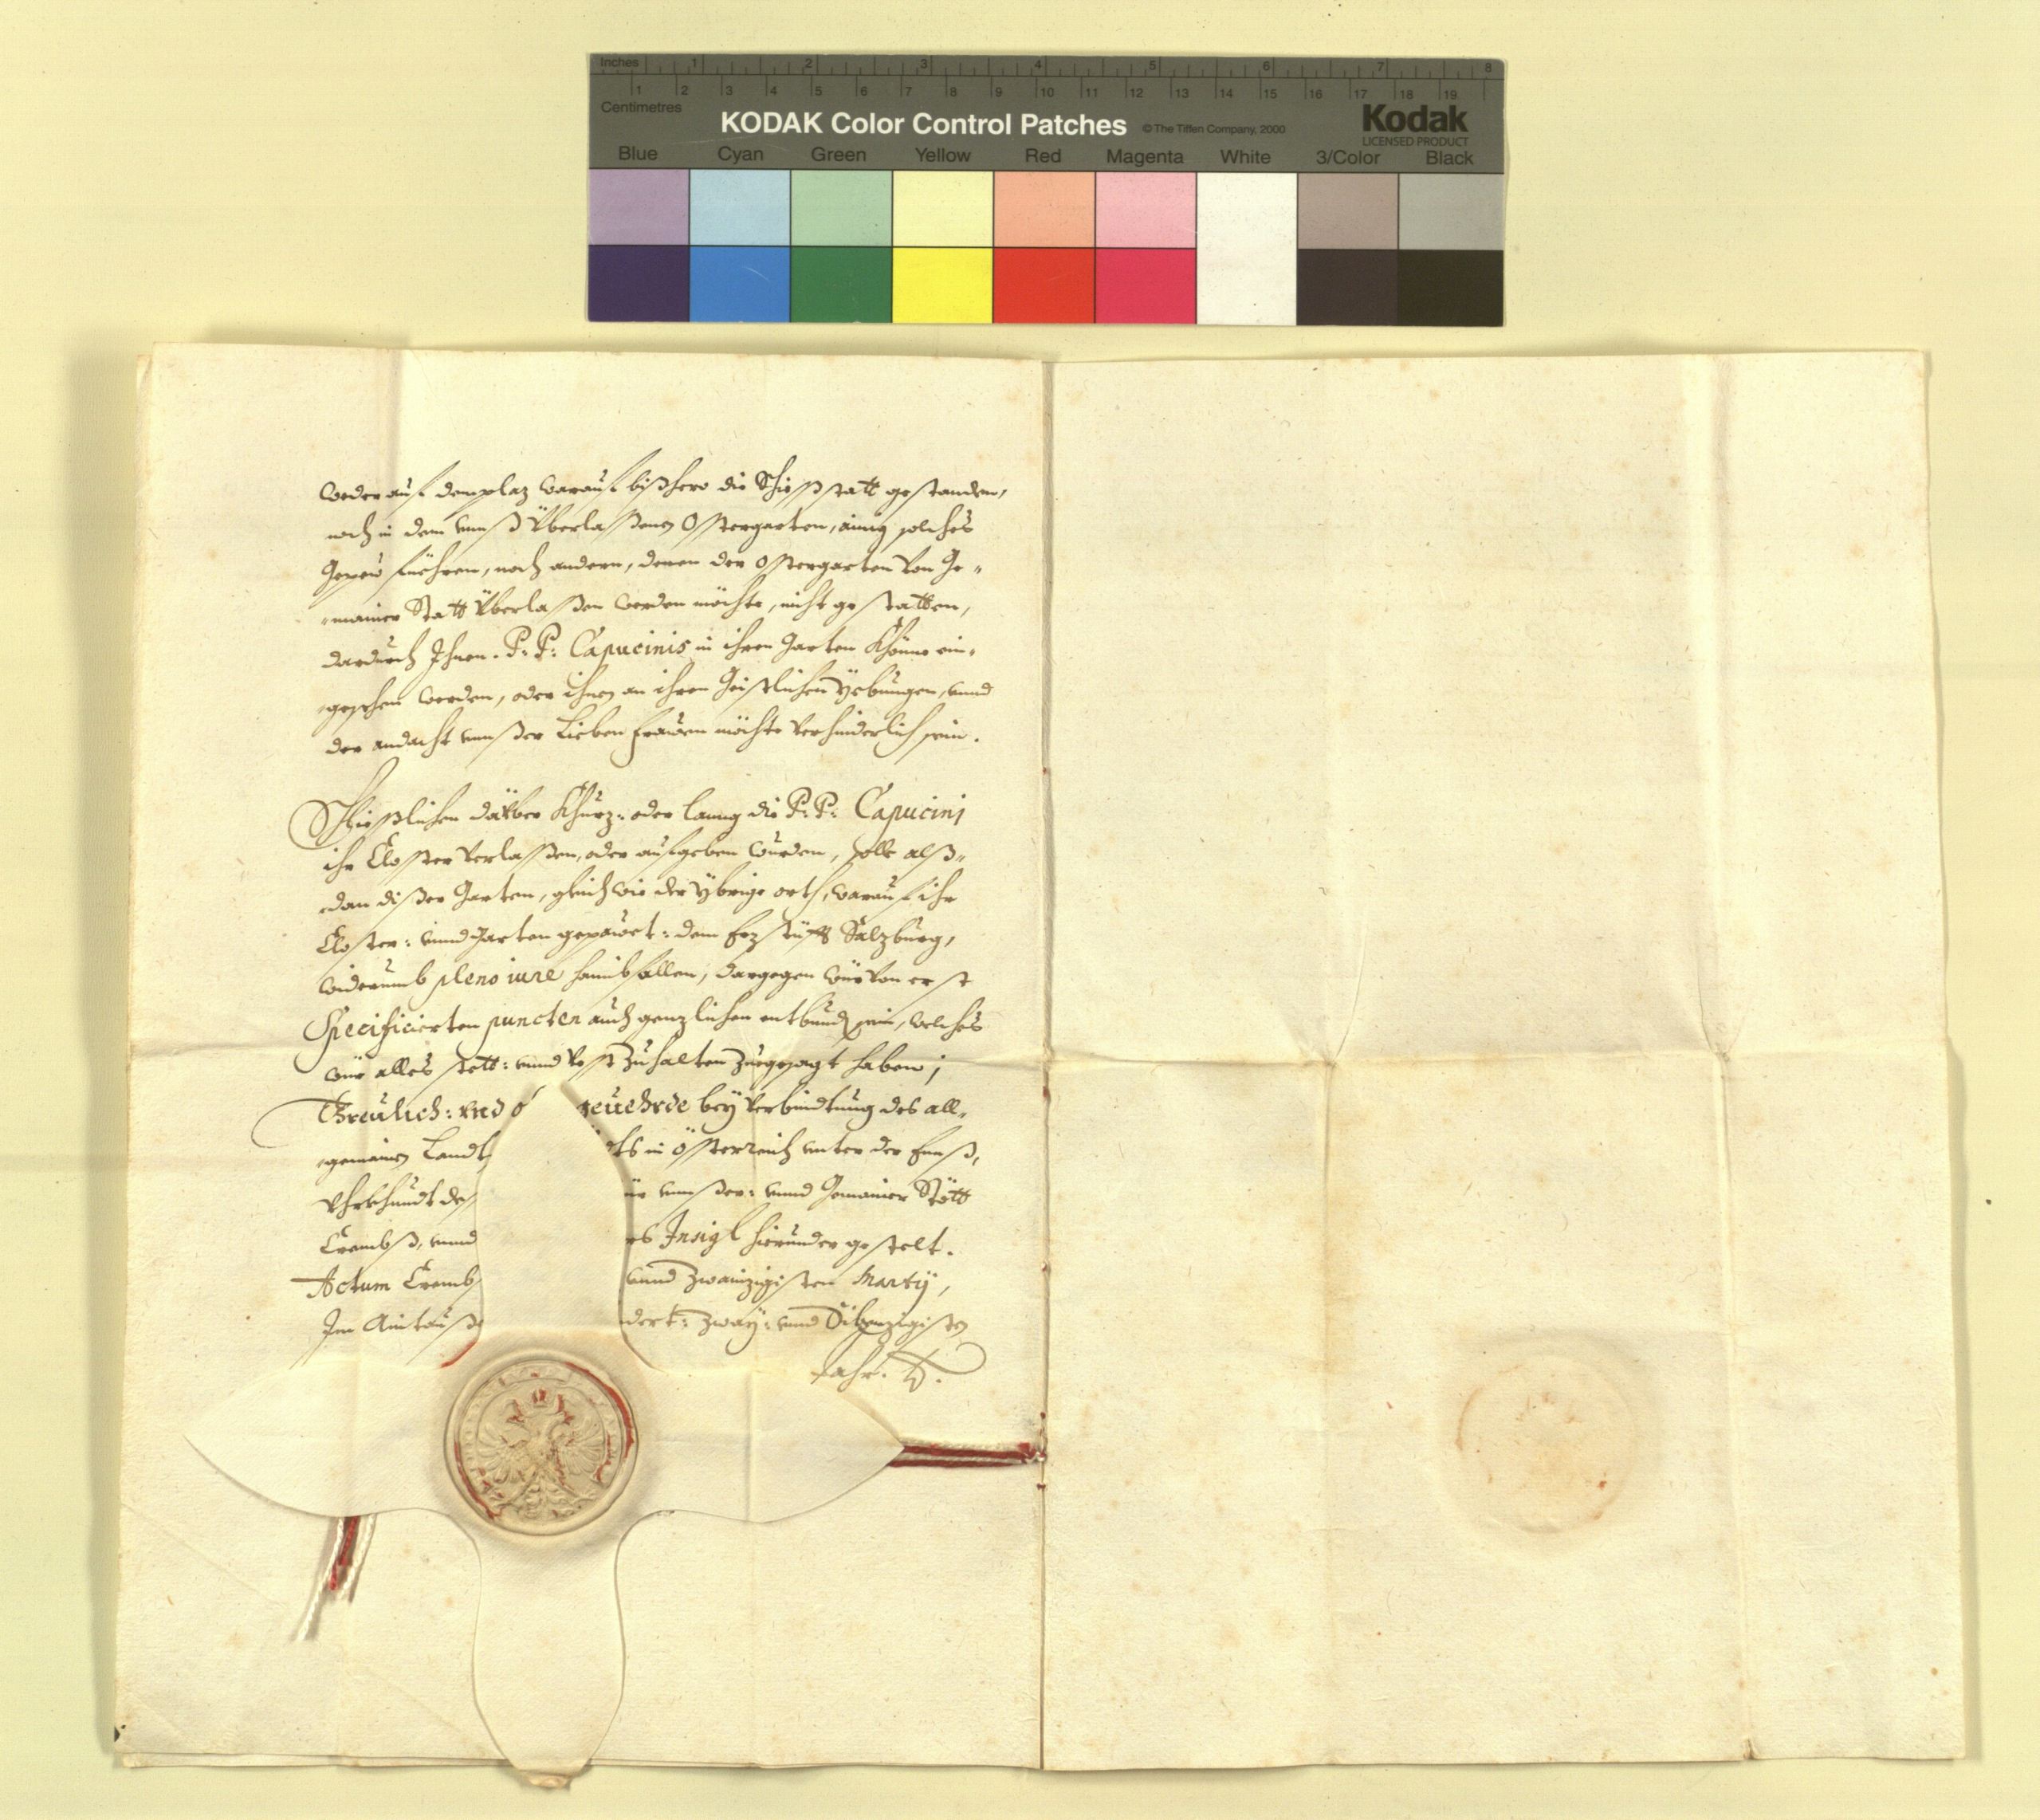 Inches 1 2 3 4 5 6 7 8
1 2 3 4 5 6 7 8 9 10 11 12 13 14 15 16 17 18 19
Centimetres
KODAK Color Control Patches © The Tiffen Company, 2000 Kodak
LICENSED PRODUCT
Blue Cyan Green Yellow Red Magenta White 3/Color Black
weder auf dem plaz warauf bißhero die Schießstatt gestanden,
noch in dem vnnß Überlaßenen Ostergarten, ainig solches
Gepew füehren, noch andern, denen der Ostergarten von Ge-
mainer Statt Überlaßen werden möchte, nicht gestatten,
dardurch Ihnen P: P: Capucinis in ihren Garten Khönne ein-
gesehen werden, oder ihnen an ihren Geistlichen Yebungen, vnnd
der andacht vnnßer Lieben Frawen möchte verhinderlich sein.
Schließlichen da Vber Khurz: oder lanng die P: P: Capucini
ihr Closter verlaßen, oder aufgeben wurden, solle alß-
dan dißer Garten, gleich wie der Ybrige orth, warauf ihr
Closter: vnnd Garten gepawet: dem Erzstüfft Salzburg,
widerumb pleno iure haimbfallen, dargegen wür von erst
Specificierten puncten auch genzlichen entbundten sein, welches
wür alles stett: vnnd vesst zuhalten zuegesagt haben;
Threulich: vnd o geuehrde bey verbindtung des all-
gemainen Landt dts in Össterreich vnter der Ennß,
Vhrkhundt deß ür vnnßer: vnnd Gemainer Stött
Crembß, vnnd es Insigl hierunder gestelt.
Actum Cremb vnnd zwainzigisten Martÿ,
Im Aintauß dert: zway: vnnd Sibenzigisten
Jahr.